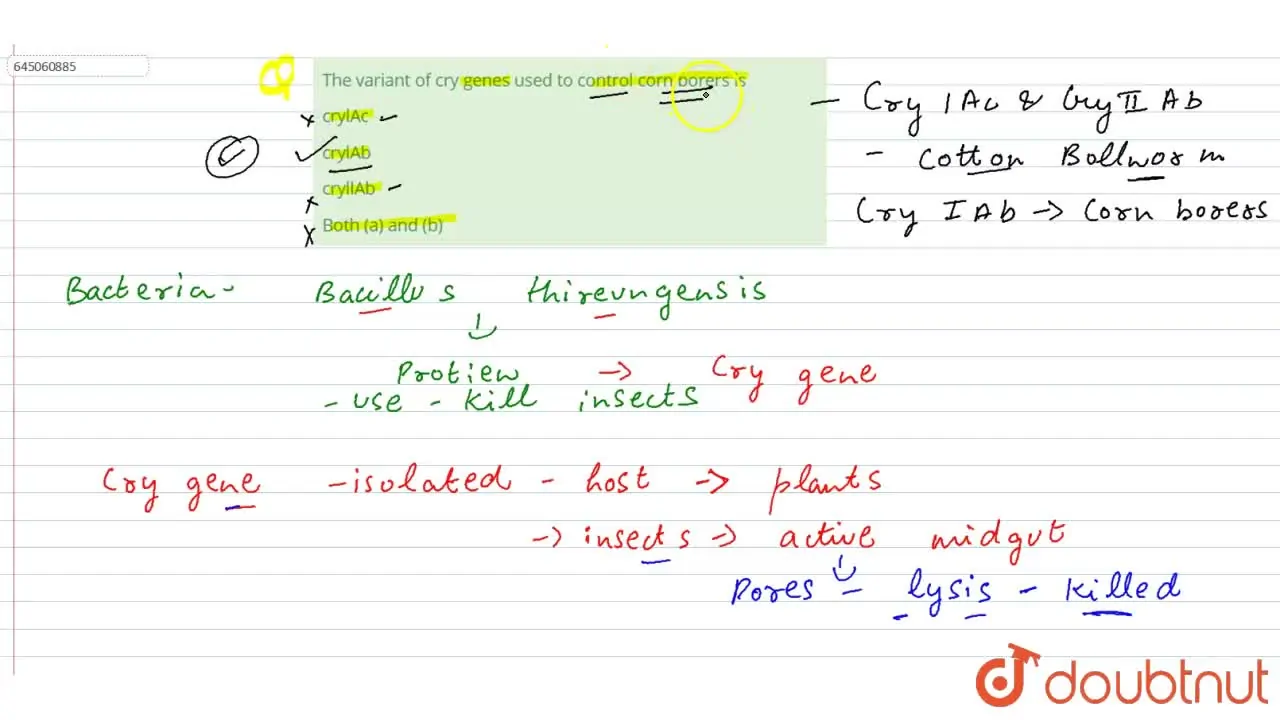 645060885
Q
The variant of cry genes used to control corn borers is
cryIAc
cryIAb
cryIIAb
Both (a) and (b)
- Cry 1 Ac & Cry II Ab
- Cotton Bollworm
Cry I Ab → Corn borers
Bacteria - Bacillus thireungensis
Protiew → Cry gene
- use - kill insects
Cry gene - isolated - host → plants
→ insects → active midgut
Pores - lysis - killed
doubtnut